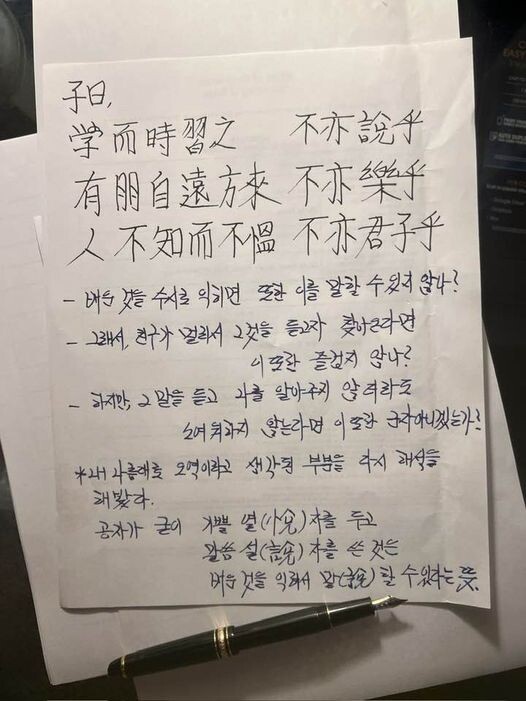 子曰,
学而時習之 不亦說乎
有朋自遠方來 不亦樂乎
人不知而不慍 不亦君子乎
- 배운 것을 수시로 익히면 또한 이를 말할 수 있지 않나?
- 그래서, 친구가 멀리서 그것을 듣고자 찾아온다면
이 또한 즐겁지 않나?
- 하지만, 그 말을 듣고 나를 알아주지 않더라도
노여워하지 않는다면 이 또한 군자 아니겠는가?
*내 나름대로 오역이라고 생각된 부분을 다시 해석을
해봤다.
공자가 굳이 기쁠 열(悅)자를 두고
말씀 설(說)자를 쓴 것은
배운 것을 익혀서 말(說)할 수 있다는 뜻.